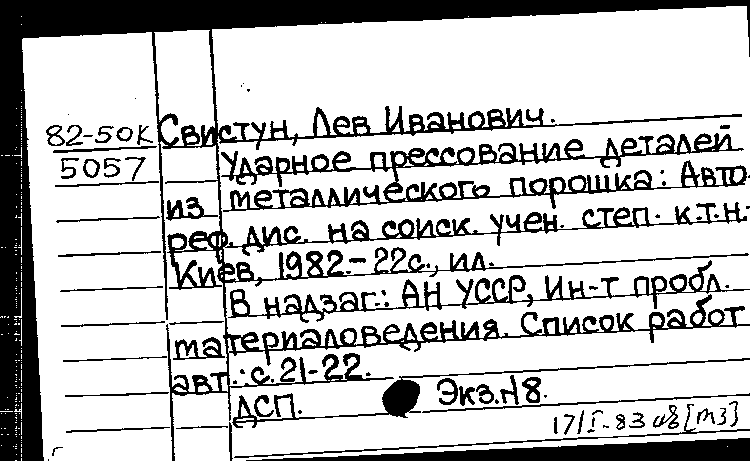 82-50К Свистун, Лев Иванович.
5057 Ударное прессование деталей
из металлического порошка: Авто-
реф. дис. на соиск. учен. степ. к.т.н.-
Киев, 1982.-22с., ил.
В надзаг.: АН УССР, Ин-т пробл.
материаловедения. Список работ
авт.: с. 21-22.
ДСП. Экз.№8.
17/I-83